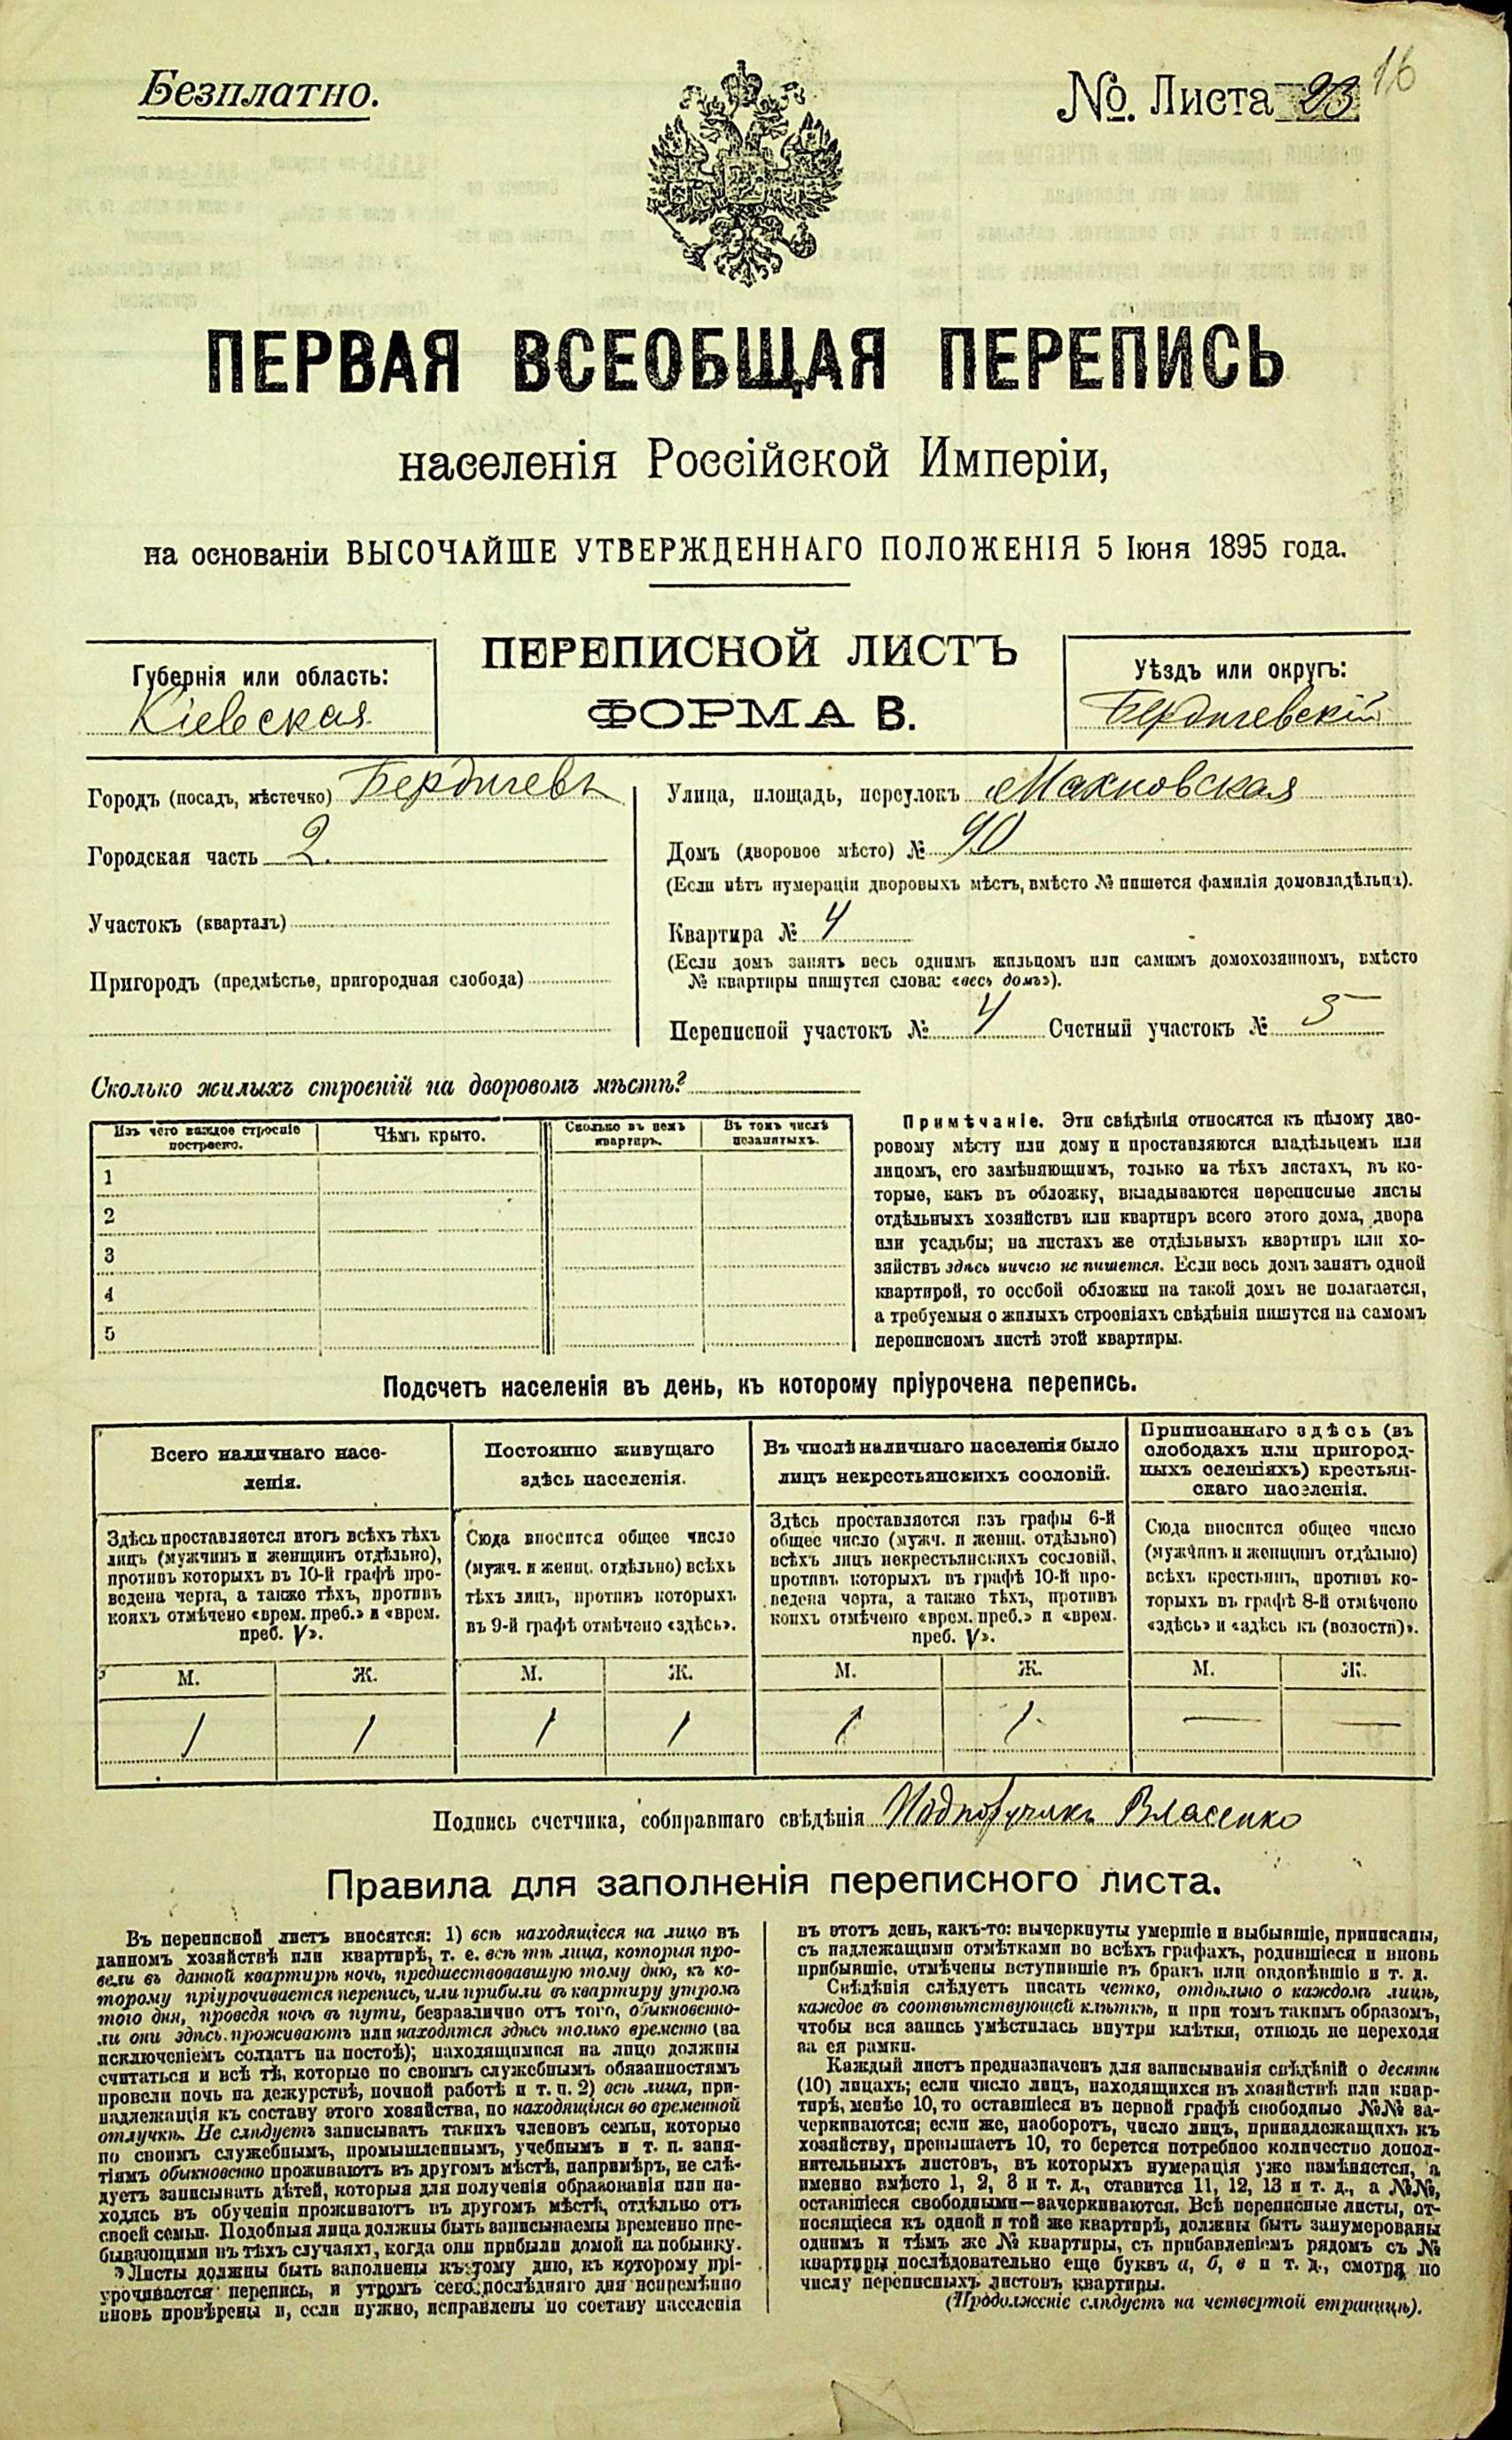 Безплатно.
№. Листа 23
16
ПЕРВАЯ ВСЕОБЩАЯ ПЕРЕПИСЬ
населенія Россійской Имперіи,
на основаніи ВЫСОЧАЙШЕ УТВЕРЖДЕННАГО ПОЛОЖЕНІЯ 5 Іюня 1895 года.
ПЕРЕПИСНОЙ ЛИСТЪ
ФОРМА В.
Губернія или область:
Кіевская
Уѣздъ или округъ:
Бердичевскій
Городъ (посадъ, мѣстечко) Бердичевъ
Городская часть 2.
Участокъ (кварталъ)
Пригородъ (предмѣстье, пригородная слобода)
Улица, площадь, переулокъ Махновская
Домъ (дворовое мѣсто) № 90
(Если нѣтъ нумераціи дворовыхъ мѣстъ, вмѣсто № пишется фамилія домовладѣльца).
Квартира № 4
(Если домъ занятъ весь однимъ жильцомъ или самимъ домохозяиномъ, вмѣсто
№ квартиры пишутся слова: «весь домъ»).
Переписной участокъ № 4 Счетный участокъ № 5
Сколько жилыхъ строеній на дворовомъ мѣстѣ?
Изъ чего каждое строеніе
построено.
Чѣмъ крыто.
Сколько въ немъ
квартиръ.
Въ томъ числѣ
незанятыхъ.
1
2
3
4
5
Примѣчаніе. Эти свѣдѣнія относятся къ цѣлому дво-
ровому мѣсту или дому и проставляются владѣльцемъ или
лицомъ, его замѣняющимъ, только на тѣхъ листахъ, въ ко-
торые, какъ въ обложку, вкладываются переписные листы
отдѣльныхъ хозяйствъ или квартиръ всего этого дома, двора
или усадьбы; на листахъ же отдѣльныхъ квартиръ или хо-
зяйствъ здѣсь ничего не пишется. Если весь домъ занятъ одной
квартирой, то особой обложки на такой домъ не полагается,
а требуемыя о жилыхъ строеніяхъ свѣдѣнія пишутся на самомъ
переписномъ листѣ этой квартиры.
Подсчетъ населенія въ день, къ которому пріурочена перепись.
Всего наличнаго насе-
ленія.
Здѣсь проставляется итогъ всѣхъ тѣхъ
лицъ (мужчинъ и женщинъ отдѣльно),
противъ которыхъ въ 10-й графѣ про-
ведена черта, а также тѣхъ, противъ
коихъ отмѣчено «врем. преб.» и «врем.
преб. V».
Постоянно живущаго
здѣсь населенія.
Сюда вносится общее число
(мужч. и женщ. отдѣльно) всѣхъ
тѣхъ лицъ, противъ которыхъ
въ 9-й графѣ отмѣчено «здѣсь».
Въ числѣ наличнаго населенія было
лицъ некрестьянскихъ сословій.
Здѣсь проставляется изъ графы 6-й
общее число (мужч. и женщ. отдѣльно)
всѣхъ лицъ некрестьянскихъ сословій,
противъ которыхъ въ графѣ 10-й про-
ведена черта, а также тѣхъ, противъ
коихъ отмѣчено «врем. преб.» и «врем.
преб. V».
Приписаннаго здѣсь (въ
слободахъ или пригород-
ныхъ селеніяхъ) крестьян-
скаго населенія.
Сюда вносится общее число
(мужчинъ и женщинъ отдѣльно)
всѣхъ крестьянъ, противъ ко-
торыхъ въ графѣ 8-й отмѣчено
«здѣсь» и «здѣсь къ (волости)».
М. Ж. М. Ж. М. Ж. М. Ж.
1 1 1 1 1 1 — —
Подпись счетчика, собиравшаго свѣдѣнія Подпоручикъ Власенко
Правила для заполненія переписного листа.
Въ переписной листъ вносятся: 1) всѣ находящіеся на лицо въ
данномъ хозяйствѣ или квартирѣ, т. е. всѣ тѣ лица, которыя про-
вели въ данной квартирѣ ночь, предшествовавшую тому дню, къ ко-
торому пріурочивается перепись, или прибыли въ квартиру утромъ
того дня, проведя ночь въ пути, безразлично отъ того, обыкновенно-
ли они здѣсь проживаютъ или находятся здѣсь только временно (за
исключеніемъ солдатъ на постоѣ); находящимися на лицо должны
считаться и всѣ тѣ, которые по своимъ служебнымъ обязанностямъ
провели ночь на дежурствѣ, ночной работѣ и т. п. 2) всѣ лица, при-
надлежащія къ составу этого хозяйства, но находящіяся во временной
отлучкѣ. Не слѣдуетъ записывать такихъ членовъ семьи, которые
по своимъ служебнымъ, промышленнымъ, учебнымъ и т. п. заня-
тіямъ обыкновенно проживаютъ въ другомъ мѣстѣ, напримѣръ, не слѣ-
дуетъ записывать дѣтей, которыя для полученія образованія или на-
ходясь въ обученіи проживаютъ въ другомъ мѣстѣ, отдѣльно отъ
своей семьи. Подобныя лица должны быть записываемы временно пре-
бывающими въ тѣхъ случаяхъ, когда они прибыли домой на побывку.
Листы должны быть заполнены къ тому дню, къ которому прі-
урочивается перепись, и утромъ сего послѣдняго дня непремѣнно
вновь провѣрены и, если нужно, исправлены по составу населенія
въ этотъ день, какъ-то: вычеркнуты умершіе и выбывшіе, приписаны,
съ надлежащими отмѣтками во всѣхъ графахъ, родившіеся и вновь
прибывшіе, отмѣчены вступившіе въ бракъ или овдовѣвшіе и т. д.
Свѣдѣнія слѣдуетъ писать четко, отдѣльно о каждомъ лицѣ,
каждое въ соотвѣтствующей клѣткѣ, и при томъ такимъ образомъ,
чтобы вся запись умѣстилась внутри клѣтки, отнюдь не переходя
за ея рамки.
Каждый листъ предназначенъ для записыванія свѣдѣній о десяти
(10) лицахъ; если число лицъ, находящихся въ хозяйствѣ или квар-
тирѣ, менѣе 10, то оставшіеся въ первой графѣ свободные №№ за-
черкиваются; если же, наоборотъ, число лицъ, принадлежащихъ къ
хозяйству, превышаетъ 10, то берется потребное количество допол-
нительныхъ листовъ, въ которыхъ нумерація уже измѣняется, а
именно вмѣсто 1, 2, 3 и т. д., ставится 11, 12, 13 и т. д., а №№,
оставшіеся свободными—зачеркиваются. Всѣ переписные листы, от-
носящіеся къ одной и той же квартирѣ, должны быть занумерованы
однимъ и тѣмъ же № квартиры, съ прибавленіемъ рядомъ съ №
квартиры послѣдовательно еще буквъ а, б, в и т. д., смотря по
числу переписныхъ листовъ квартиры.
(Продолженіе слѣдуетъ на четвертой страницѣ).